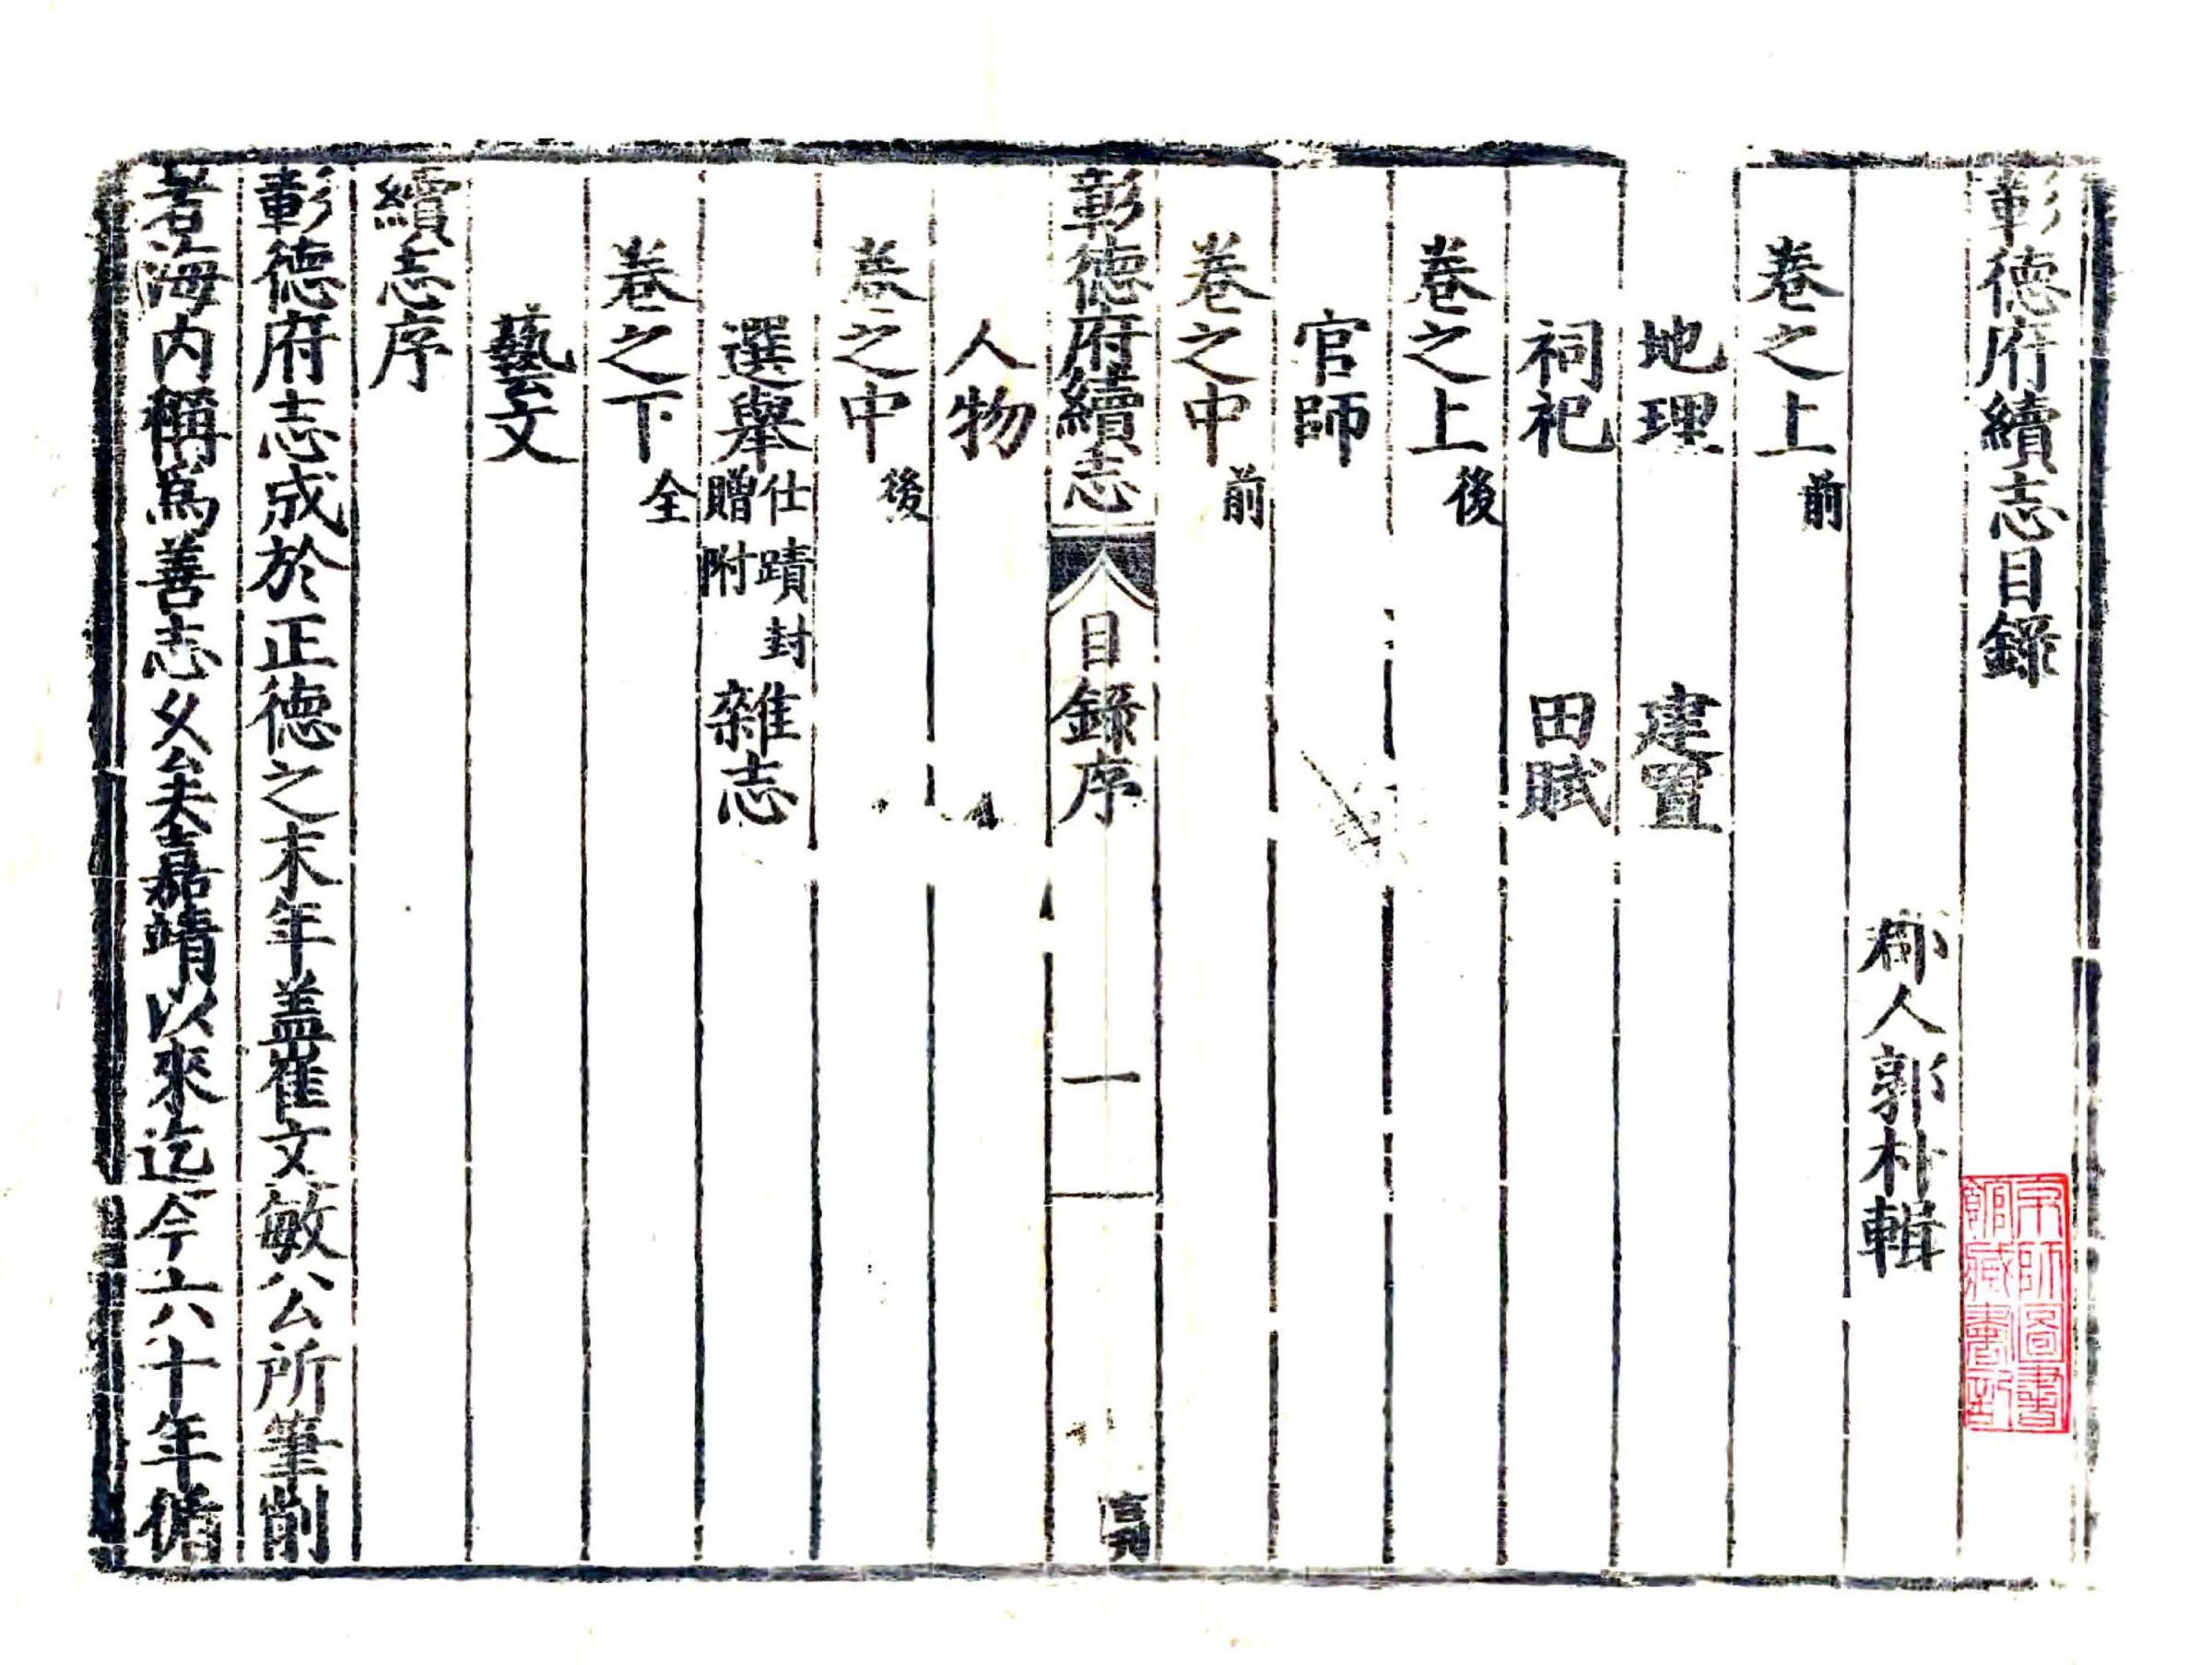 彰德府續志目錄
郡人郭朴輯
卷之上前
地理　建置
祠祀　田賦
卷之上後
官師
卷之中前
彰德府續志　目錄序　一
人物
卷之中後
選舉仕蹟封贈附　雜志
卷之下全
藝文
續志序
彰德府志成於正德之末年盖崔文敏公所筆削
者海内稱爲善志
嘉靖以來迄今六十年
京師圖書
館藏書記